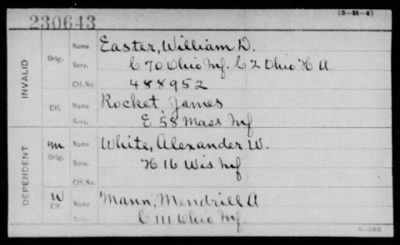 (3-11-4)
230643
INVALID
Orig.
Name Easter, William D.
Serv. C 70 Ohio Inf. C 2 Ohio H A
Ctf. No. 488952
Ctf.
Name Rocket, James
Serv. E 58 Mass Inf
DEPENDENT
M
Orig.
Name White, Alexander W.
Serv. H 16 Wis Inf
Ctf. No.
W
Ctf.
Name Mann, Mendrill A
Serv. C 111 Ohio Inf